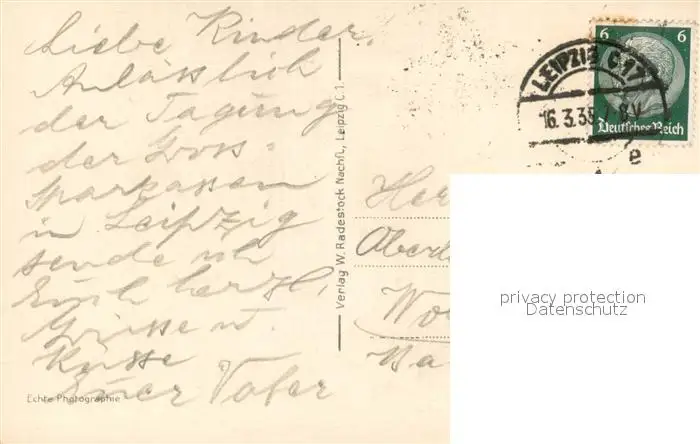 Liebe Kinder,
Anlässlich
der Tagung
der Gross-
Sparkassen
in Leipzig
sende ich
Euch herzl.
Grüsse u.
Küsse
Euer Vater
Echte Photographie
Verlag W. Radestock Nachfl., Leipzig C 1.
6 6
Deutsches Reich
LEIPZIG C 17
16.3.35
8 V
e
Her
Ober
Wo
Ba
privacy protection
Datenschutz